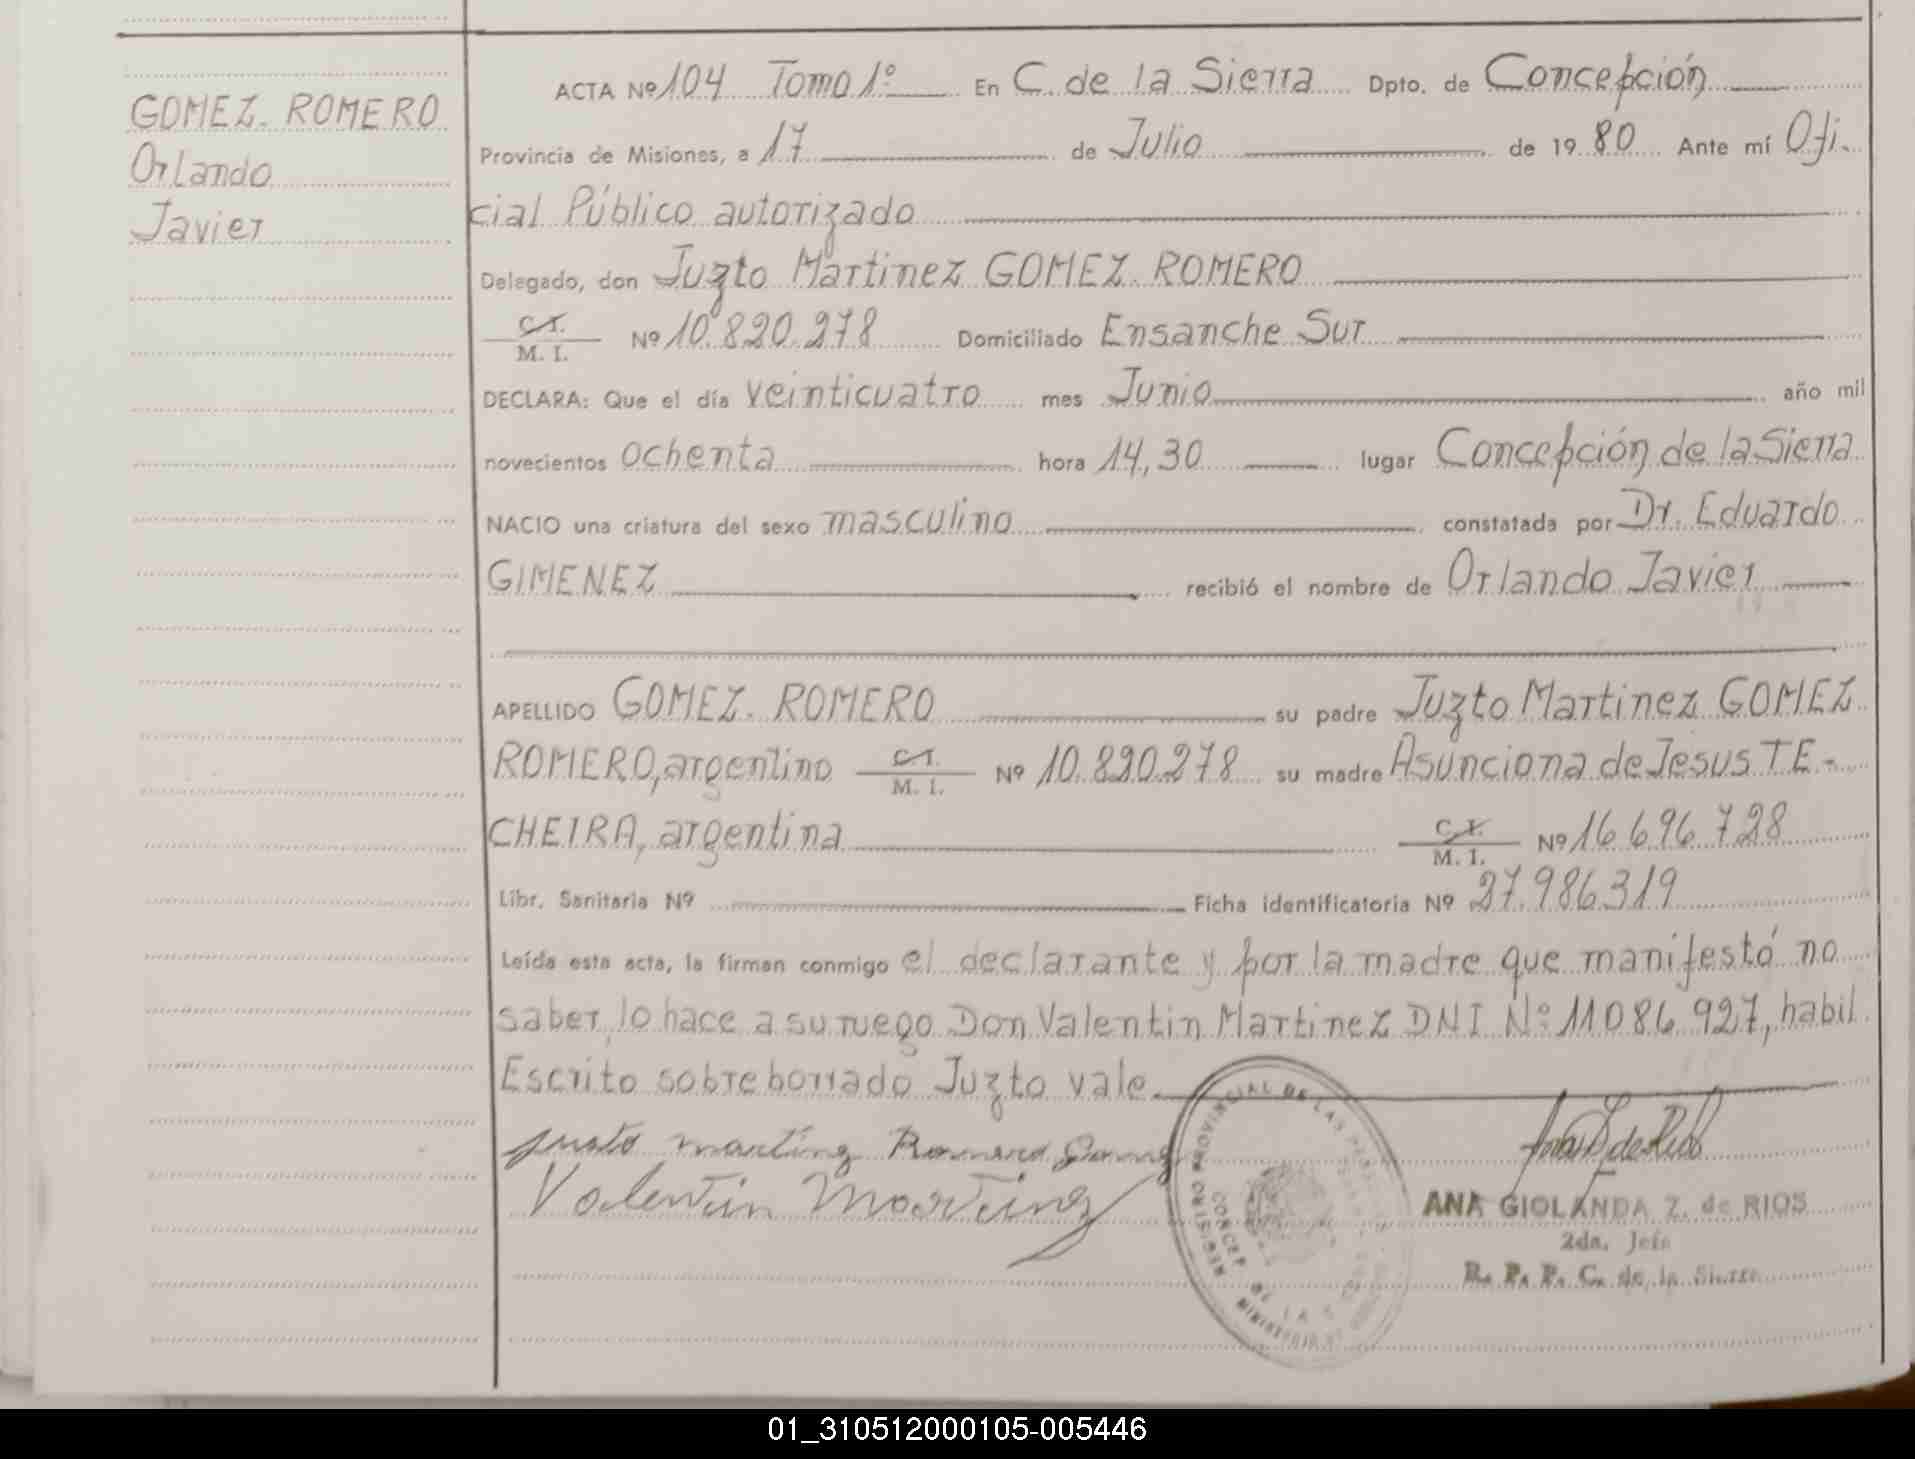 GOMEZ-ROMERO
Orlando
Javier
ACTA Nº 104 Tomo 1º En C. de la Sierra Dpto. de Concepción
Provincia de Misiones, a 17 de Julio de 1980 Ante mí Ofi-
cial Público autorizado
Delegado, don Juzto Martinez GOMEZ-ROMERO
C.I.
M. I. Nº 10.820.278 Domiciliado Ensanche Sur
DECLARA: Que el día veinticuatro mes Junio año mil
novecientos ochenta hora 14,30 lugar Concepción de la Sierra
NACIO una criatura del sexo masculino constatada por Dr. Eduardo
GIMENEZ recibió el nombre de Orlando Javier
APELLIDO GOMEZ-ROMERO su padre Juzto Martinez GOMEZ
ROMERO, argentino C.I.
M. I. Nº 10.820.278 su madre Asunciona de Jesus TE-
CHEIRA, argentina C.I.
M. I. Nº 16.696.728
Libr. Sanitaria Nº Ficha identificatoria Nº 27.986.319
Leída esta acta, la firman conmigo el declarante y por la madre que manifestó no
saber, lo hace a su ruego Don Valentin Martinez DNI Nº 11.086.927, habil
Escrito sobreborrado Juzto vale.
justo martinz Romero Gomez
Valentin Martinez
REGISTRO PROVINCIAL DE LAS
CONCEP. DE LA S
ANA GIOLANDA Z. de RIOS
2da. Jefa
R. P. P. C. de la Sierra
01_310512000105-005446